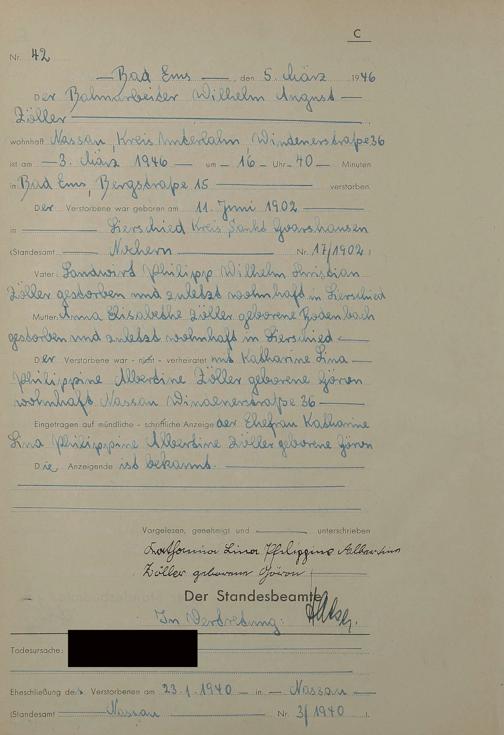 C
Nr. 42
Bad Ems, den 5. März 1946
Der Bahnarbeiter Wilhelm August
Zöller
wohnhaft Nassau, Kreis Unterlahn, Windenerstraße 36
ist am 3. März 1946 um 16 Uhr 40 Minuten
in Bad Ems, Bergstraße 15 verstorben.
Der Verstorbene war geboren am 11. Juni 1902
in Lierschied Kreis Sankt Goarshausen
(Standesamt Nochern Nr. 17/1902)
Vater: Landwirt Philipp Wilhelm Christian
Zöller gestorben und zuletzt wohnhaft in Lierschied
Mutter: Anna Elisabethe Zöller geborene Rodenbach
gestorben und zuletzt wohnhaft in Lierschied
Der Verstorbene war - nicht - verheiratet mit Katharine Lina
Philippine Albertine Zöller geborene
wohnhaft Nassau Windenerstraße 36
Eingetragen auf mündliche - schriftliche Anzeige der Ehefrau Katharine
Lina Philippine Albertine Zöller geborene
Die Anzeigende ist bekannt.
Vorgelesen, genehmigt und unterschrieben
Katharina Lina Philippine Albertine
Zöller geborene
Der Standesbeamte
In Vertretung:
Todesursache:
Eheschließung des Verstorbenen am 23.1.1940 in Nassau
(Standesamt Nassau Nr. 3/1940).